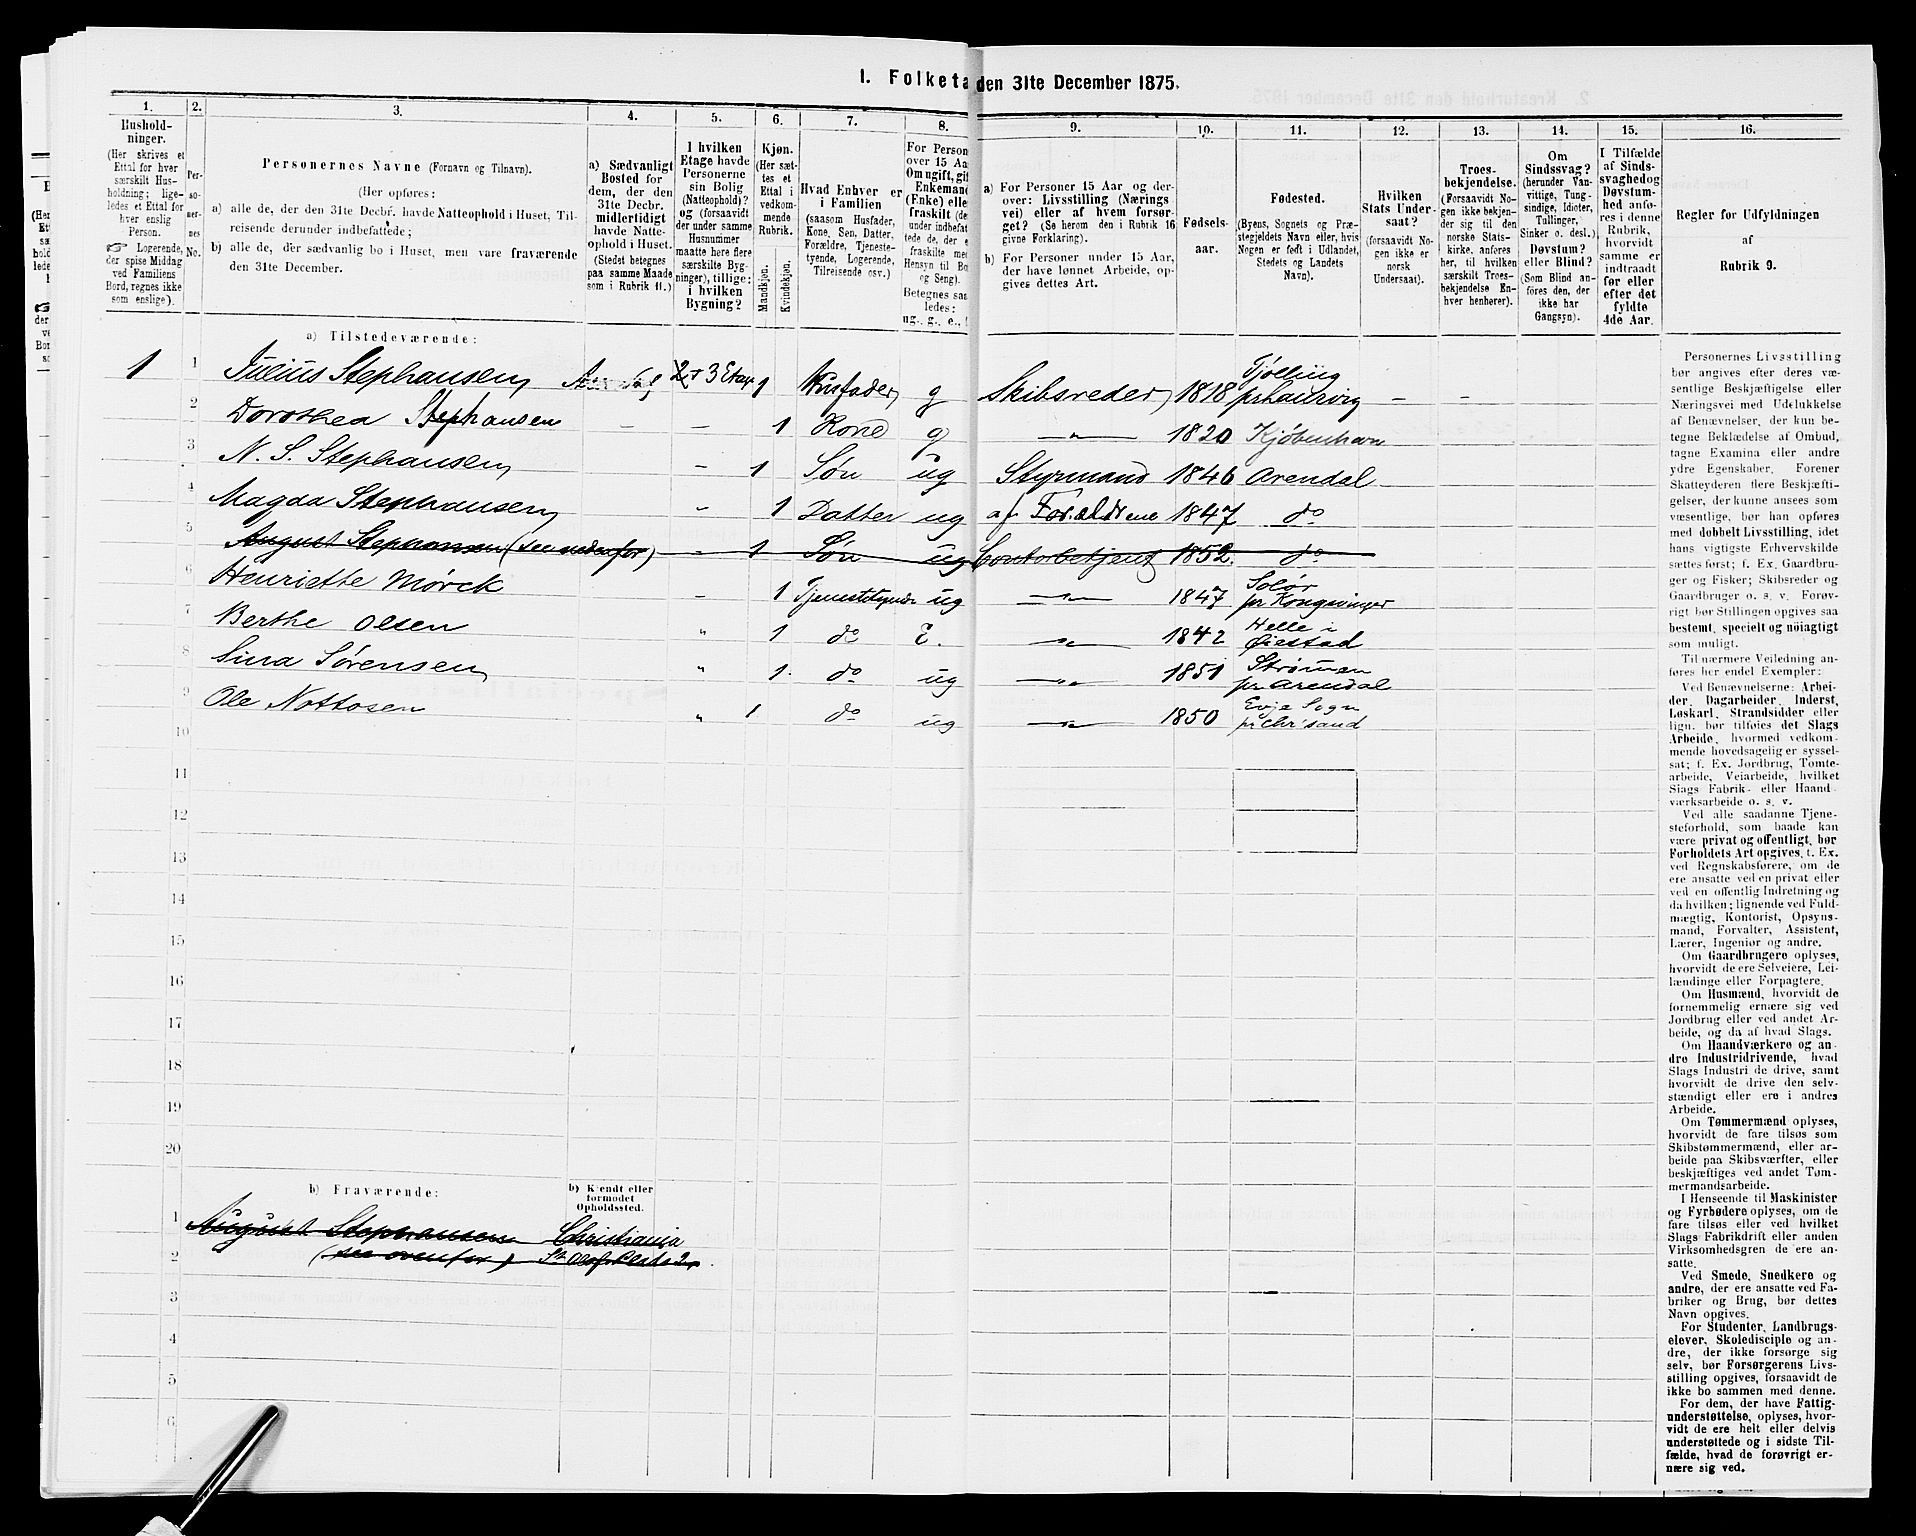 1. Folketa den 31te December 1875.
1. 2. 3. 4. 5. 6. 7. 8. 9. 10. 11. 12. 13. 14. 15. 16.
Hushold-
ninger.
(Her skrives et
Ettal for hver
særskilt Hus-
holdning; lige-
ledes et Ettal for
hver enslig
Person.
Logerende,
der spise Middag
ved Familiens
Bord, regnes ikke
som enslige).
Per-
so-
ner-
nes
No.
Personernes Navne (Fornavn og Tilnavn).
(Her opføres:
a) alle de, der den 31te Decbr. havde Natteophold i Huset, Til-
reisende derunder indbefattede;
b) alle de, der sædvanlig bo i Huset, men vare fraværende
den 31te December.
a) Sædvanligt
Bosted for
dem, der den
31te Decbr.
midlertidigt
havde Natte-
ophold i Huset.
(Stedet betegnes
paa samme Maade
som i Rubrik 11.)
I hvilken
Etage havde
Personerne
sin Bolig
(Natteophold)?
og (forsaavidt
der under samme
Husnummer
maatte høre flere
særskilte Byg-
ninger), tillige:
i hvilken
Bygning?
Kjøn.
(Her sæt-
tes et
Ettal i
vedkom-
mende
Rubrik.
Mandkjøn.
Kvindekjøn.
Hvad Enhver er
i Familien
(saasom Husfader,
Kone, Søn, Datter,
Forældre, Tjeneste-
tyende, Logerende,
Tilreisende osv.)
For Person
over 15 Aa
Om ugift, gift
Enkemand
(Enke) elle
fraskilt (de
under indbefat
tede de, der e
fraskilte med
Hensyn til Bo
og Seng).
Betegnes saa
ledes:
ug., g., e.,
a) For Personer 15 Aar og der-
over: Livsstilling (Nærings
vei) eller af hvem forsør-
get? (Se herom den i Rubrik 16
givne Forklaring).
b) For Personer under 15 Aar,
der have lønnet Arbeide, op-
gives dettes Art.
Fødsels-
aar.
Fødested.
(Byens, Sognets og Præ-
stegjeldets Navn eller, hvis
Nogen er født i Udlandet,
Stedets og Landets
Navn).
Hvilken
Stats Under-
saat?
(forsaavidt No-
gen ikke er
norsk
Undersaat).
Troes-
bekjendelse.
(Forsaavidt No-
gen ikke bekjen-
der sig til den
norske Stats-
kirke, anføres
her, til hvilken
særskilt Troes-
bekjendelse En-
hver henhører).
Om
Sindssvag?
(herunder Van-
vittige, Tung-
sindige, Idioter,
Tullinger,
Sinker o. desl.)
Døvstum?
eller Blind?
(Som Blind an-
føres den, der
ikke har
Gangsyn).
I Tilfælde
af Sinds-
svaghed og
Døvstum-
hed anfø-
res i denne
Rubrik,
hvorvidt
samme er
indtraadt
før eller
efter det
fyldte
4de Aar.
Regler for Udfyldningen
af
Rubrik 9.
a) Tilstedeværende:
1 1 Julius Stephansen, 2 + 3 Etage 1 Husfader, g Skibsreder, 1818 Tjølling pr Laurvig – –
2 Dorothea Stephansen – – 1 Kone g " 1820 Kjøbenhavn
3 N. S. Stephansen, – 1 Søn ug Styrmand 1846 Arendal
4 Magda Stephansen, – 1 Datter ug af Forældrene 1847 do
5 August Stephansen (see nedenfor) – 1 Søn ug Contorbetjent 1852. do
6 Henriette Mørck – 1 Tjenestetyende ug " 1847 Solør pr Kongsvinger
7 Berthe Olsen " 1 do E. " 1842 Helle i Øiestad
8 Sina Sørensen, " 1. do ug " 1851 Strømmen pr Arendal
9 Ole Nottosen " 1 do ug " 1850 Evje Sogn pr Chr'sand
10
11
12
13
14
15
16
17
18
19
20
b) Fraværende:
b) Kjendt eller
formodet
Opholdssted.
1 August Stephansen Christiania
2 (see ovenfor) St Olafs Plads 2.
3
4
5
6
Personernes Livsstilling
bør angives efter deres væ-
sentlige Beskjæftigelse eller
Næringsvei med Udelukkelse
af Benævnelser, der kun be-
tegne Beklædelse af Ombud,
tagne Examina eller andre
ydre Egenskaber. Forener
Skatteyderen flere Beskjæfti-
gelser, der kunne ansees som
væsentlige, bør han opføres
med dobbelt Livsstilling, idet
hans vigtigste Erhvervskilde
sættes først; f. Ex. Gaardbru-
ger og Fisker; Skibsreder og
Gaardbruger o. s. v. Forøv-
rigt bør Stillingen opgives saa
bestemt, specielt og nøiagtigt
som muligt.
Til nærmere Veiledning an-
føres her endel Exempler:
Ved Benævnelserne: Arbei-
der, Dagarbeider, Inderst,
Løskarl, Strandsidder eller
lign. bør tilføies det Slags
Arbeide, hvormed vedkom-
mende hovedsagelig er syssel-
sat; f. Ex. Jordbrug, Tomte-
arbeide, Veiarbeide, hvilket
Slags Fabrik- eller Haand-
værksarbeide o. s. v.
Ved alle saadanne Tjene-
steforhold, som baade kan
være privat og offentligt, bør
Forholdets Art opgives, t. Ex.
ved Regnskabsførere, om de
ere ansatte ved en privat eller
ved en offentlig Indretning og
da hvilken; lignende ved Fuld-
mægtig, Kontorist, Opsyns-
mand, Forvalter, Assistent,
Lærer, Ingeniør og andre.
Om Gaardbrugere oplyses,
hvorvidt de ere Selveiere, Lei-
lændinge eller Forpagtere.
Om Husmænd, hvorvidt de
fornemmelig ernære sig ved
Jordbrug eller ved andet Ar-
beide, og da af hvad Slags.
Om Haandværkere og an-
dre Industridrivende, hvad
Slags Industri de drive, samt
hvorvidt de drive den selv-
stændigt eller ere i andres
Arbeide.
Om Tømmermænd oplyses,
hvorvidt de fare tilsøs som
Skibstømmermænd, eller ar-
beide paa Skibsværfter, eller
beskjæftiges ved andet Tøm-
mermandsarbeide.
I Henseende til Maskinister
og Fyrbødere oplyses, om de
fare tilsøs eller ved hvilket
Slags Fabrikdrift eller anden
Virksomhedsgren de ere an-
satte.
Ved Smede, Snedkere og
andre, der ere ansatte ved Fa-
briker og Brug, bør dettes
Navn opgives.
For Studenter, Landbrugs-
elever, Skoledisciple og an-
dre, der ikke forsørge sig
selv, bør Forsørgerens Livs-
stilling opgives, forsaavidt de
ikke bo sammen med denne.
For dem, der have Fattig-
understøttelse, oplyses, hvor-
vidt de ere helt eller delvis
understøttede og i sidste Til-
fælde, hvad de forøvrigt er-
nære sig ved.